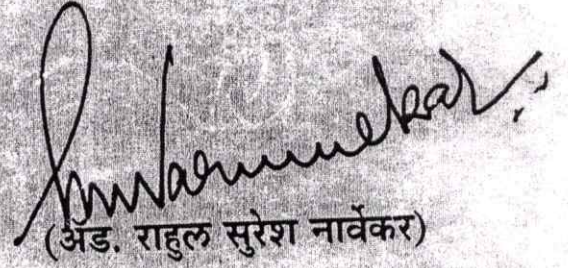 (अॅड. राहुल सुरेश नार्वेकर)